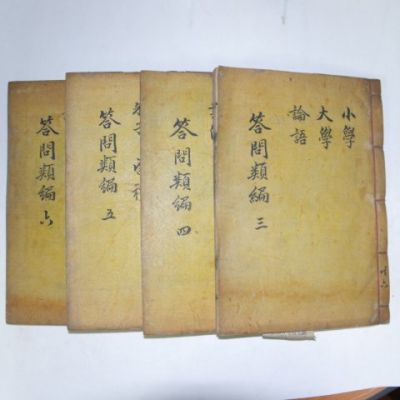 小學
大學
論語
答問類編 三
答問類編 四
答問類編 五
答問類編 六
共六